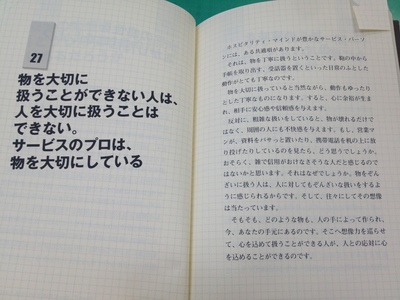 27
物を大切に
扱うことができない人は、
人を大切に扱うことは
できない。
サービスのプロは、
物を大切にしている
ホスピタリティ・マインドが豊かなサービス・パーソ
ンには、ある共通項があります。
それは、物を丁寧に扱うということです。鞄の中から
手帳を取り出す、受話器を置くといった日常のふとした
動作がとても丁寧なのです。
物を大切に扱っていると当然ながら、動作もゆったり
とした丁寧なものになります。すると、心に余裕が生ま
れ、相手に安心感や信頼感を与えます。
反対に、粗雑な扱いをしていると、物が壊れるだけで
はなく、周囲の人にも不快感を与えます。もし、営業マ
ンが、資料をバサッと置いたり、携帯電話を机の上に放
り投げたりしているのを見たら、どう思うでしょうか。
おそらく、雑で信用がおけなさそうな人だと感じるので
はないかと思います。それはなぜでしょうか。物をぞん
ざいに扱う人は、人に対してもぞんざいな扱いをするよ
うに感じられるからです。そして、往々にしてその想像
は当たっています。
そもそも、どのような物も、人の手によって作られ、
今、あなたの手元にあるのです。そこへ想像力を巡らせ
て、心を込めて扱うことができる人が、人との応対に心
を込めることができるのです。